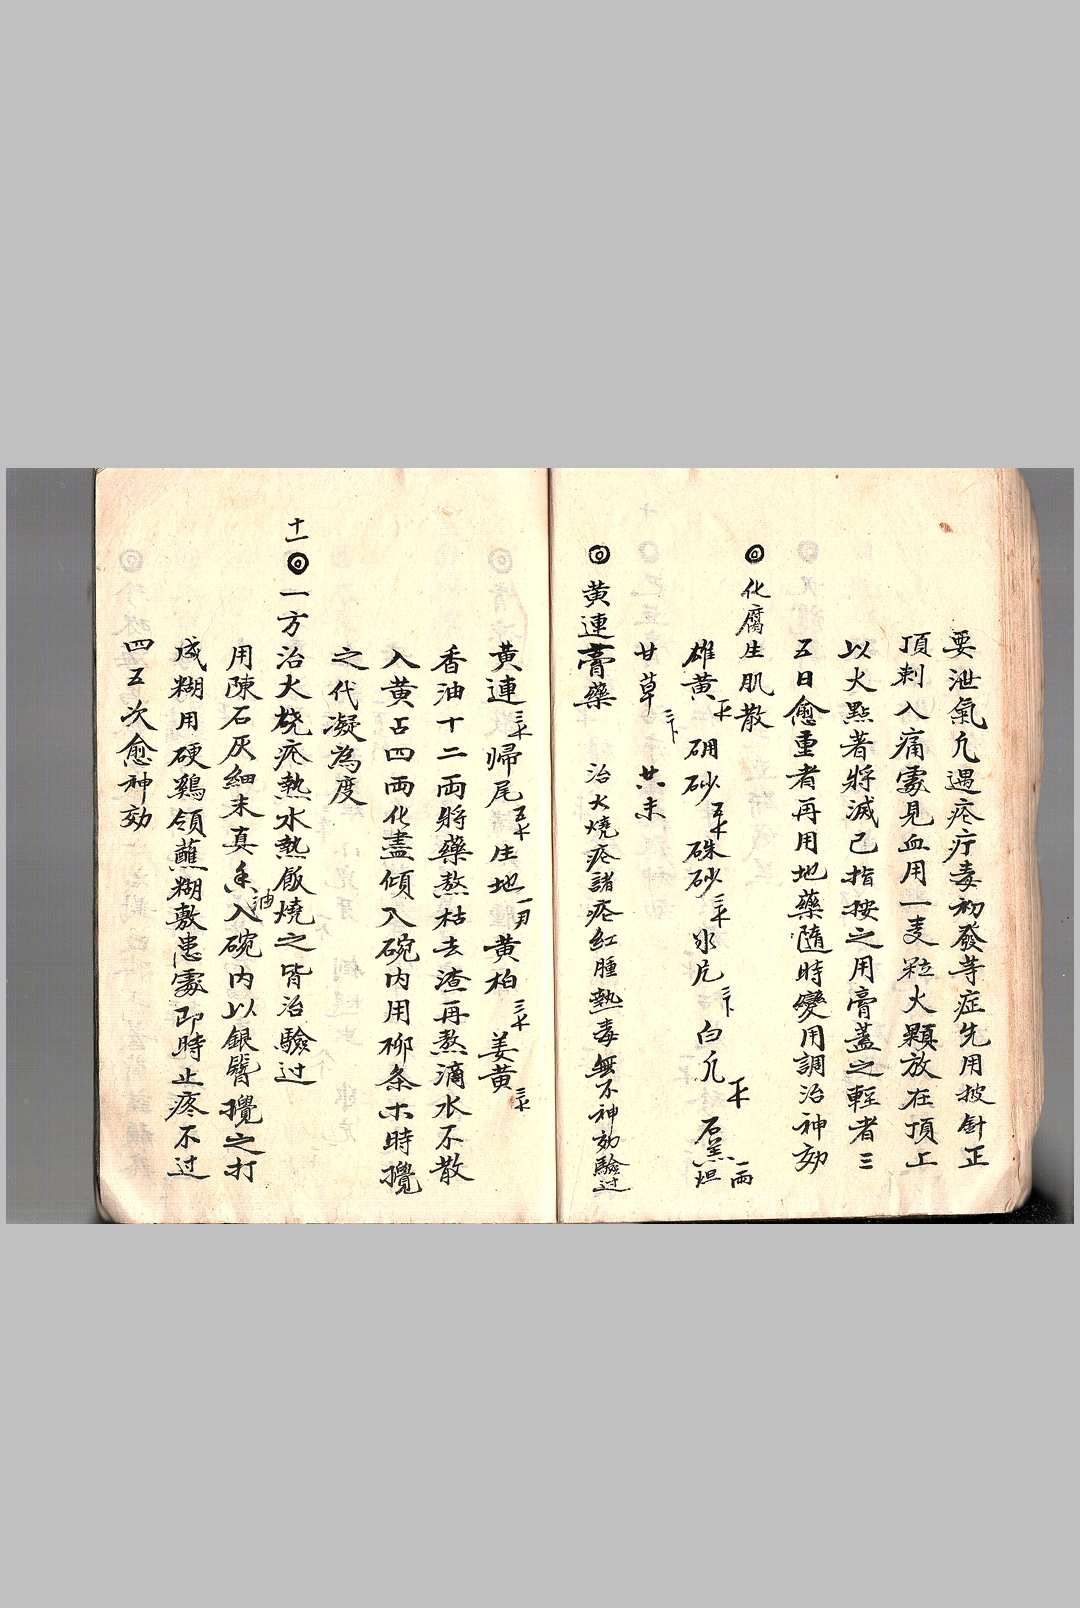 要泄氣凢遇疮疔毒初發等症先用披針正
頂刺入痛處見血用一麦粒火顆放在頂上
以火點著將滅已指按之用膏蓋之輕者三
五日愈重者再用地藥隨時變用調治神効
◎化腐生肌散
雄黄 硼砂 硃砂 氷片 白凢 石羔 一両
甘草 共末
◎黄連膏藥 治火燒疮諸疮紅腫熱毒無不神効驗过
黄連 帰尾 生地 黄柏 姜黄
香油十二両將藥熬枯去渣再熬滴水不散
入黄占四両化盡傾入碗内用柳条不時攪
之代凝為度
十一◎一方治火燒疮熱水熱飯燒之皆治驗过
用陳石灰細末真香油入碗内以銀簪攪之打
成糊用硬鷄翎蘸糊敷患處即時止疼不过
四五次愈神効